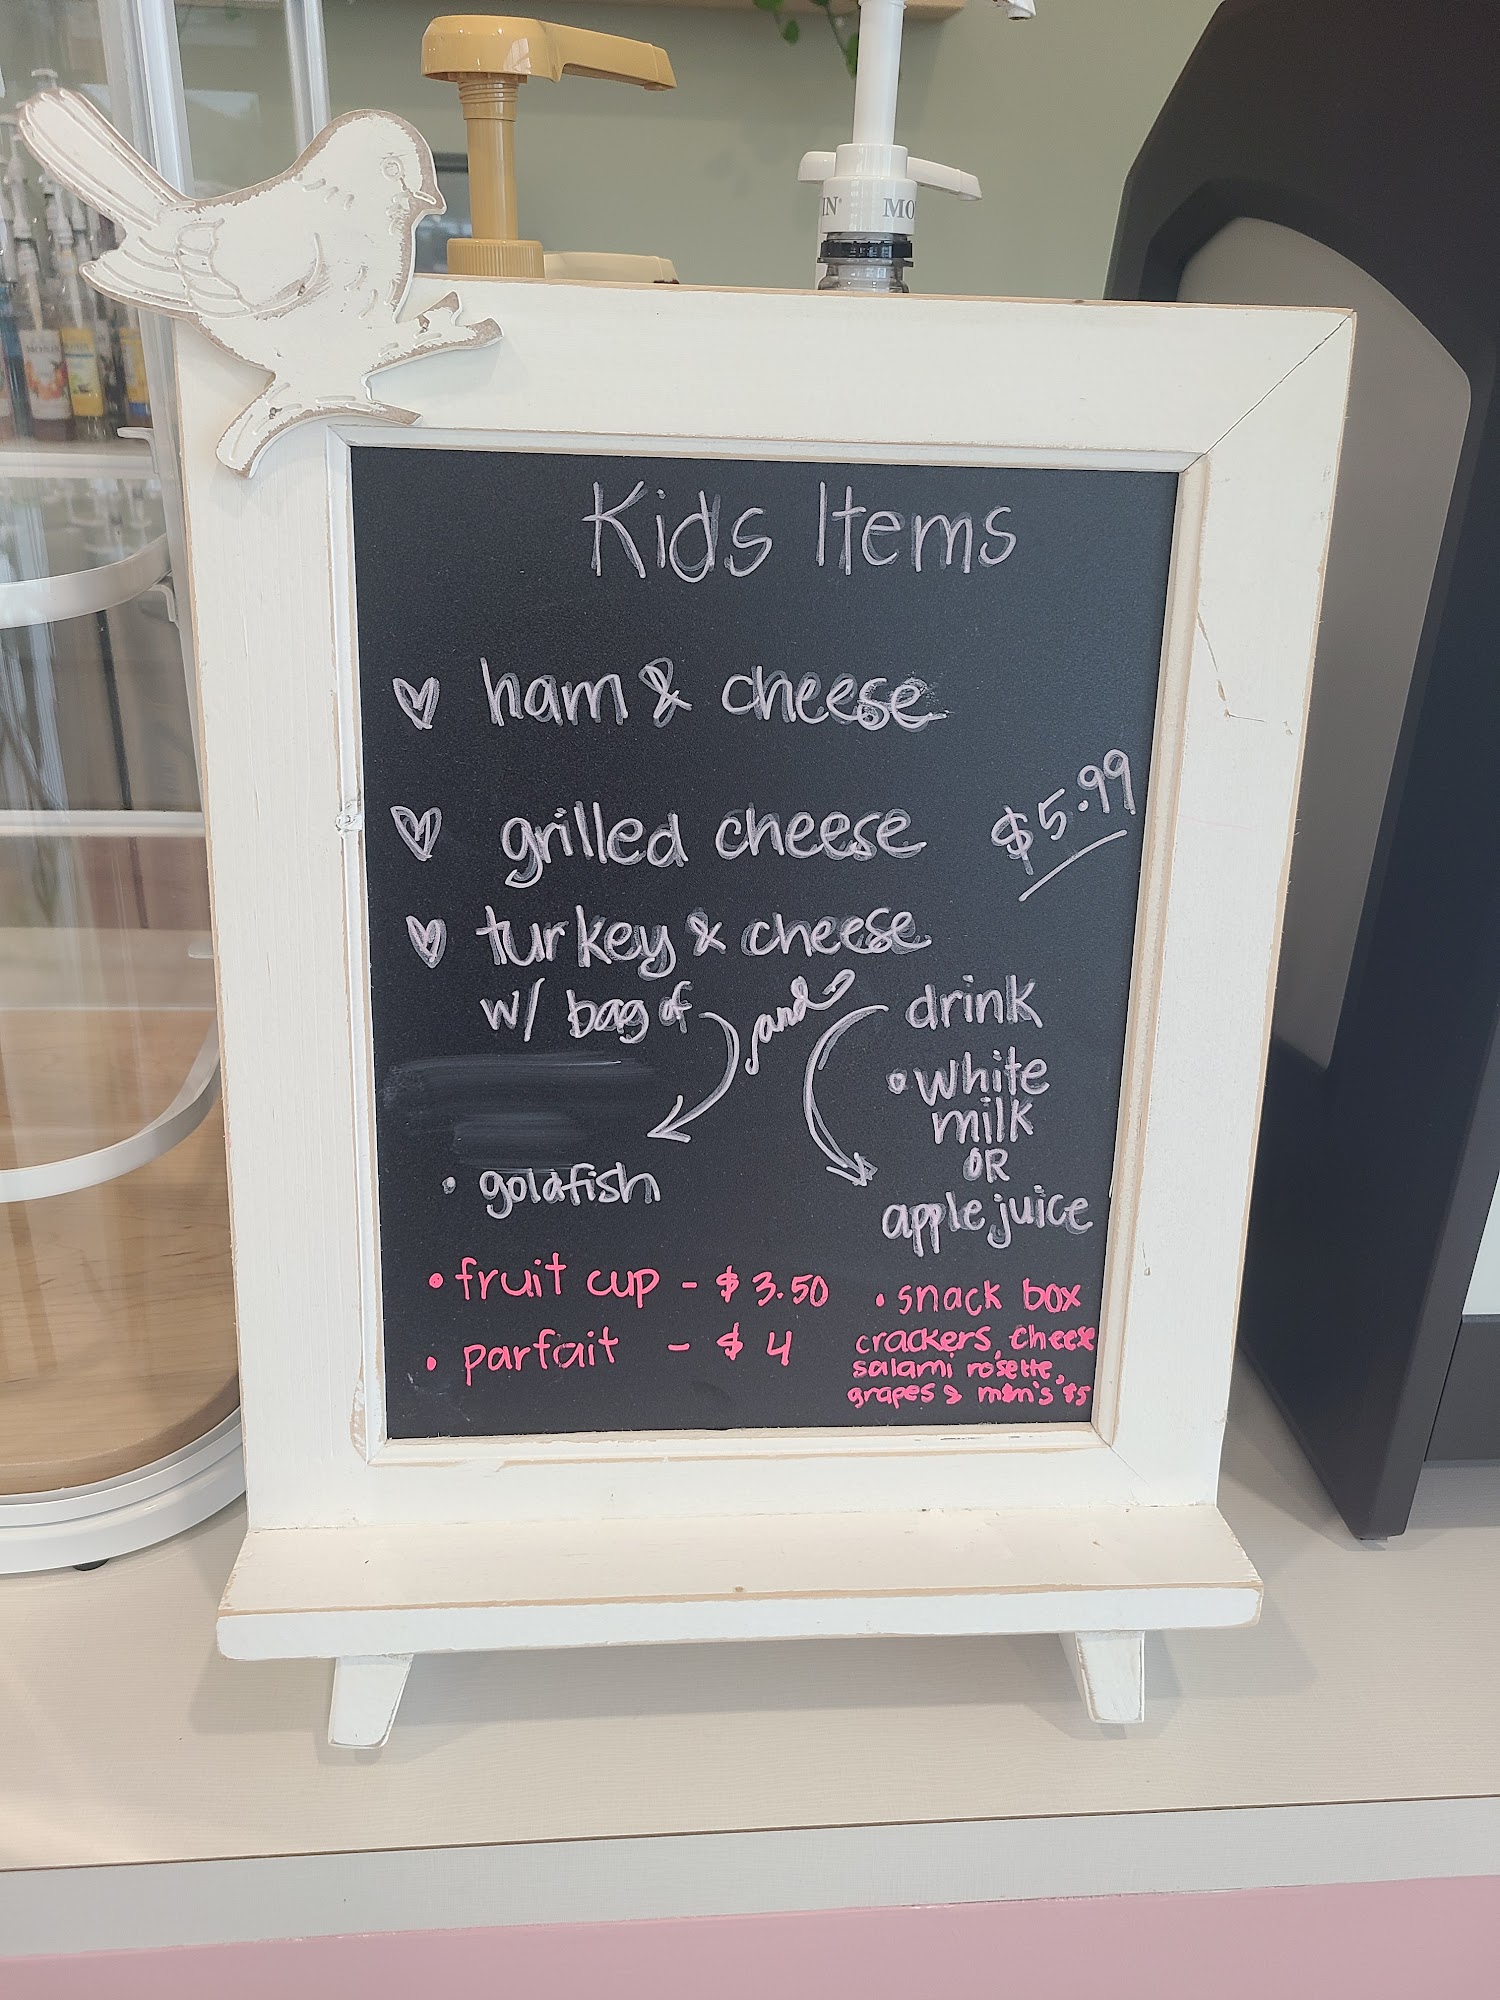 IN MO
Kids Items
ham & cheese
grilled cheese $5.99
turkey & cheese
w/ bag of and drink
• white
milk
OR
• goldfish
apple juice
• fruit cup - $3.50
• parfait - $4
• snack box
crackers, cheese
salami rosette,
grapes & m&m's $5